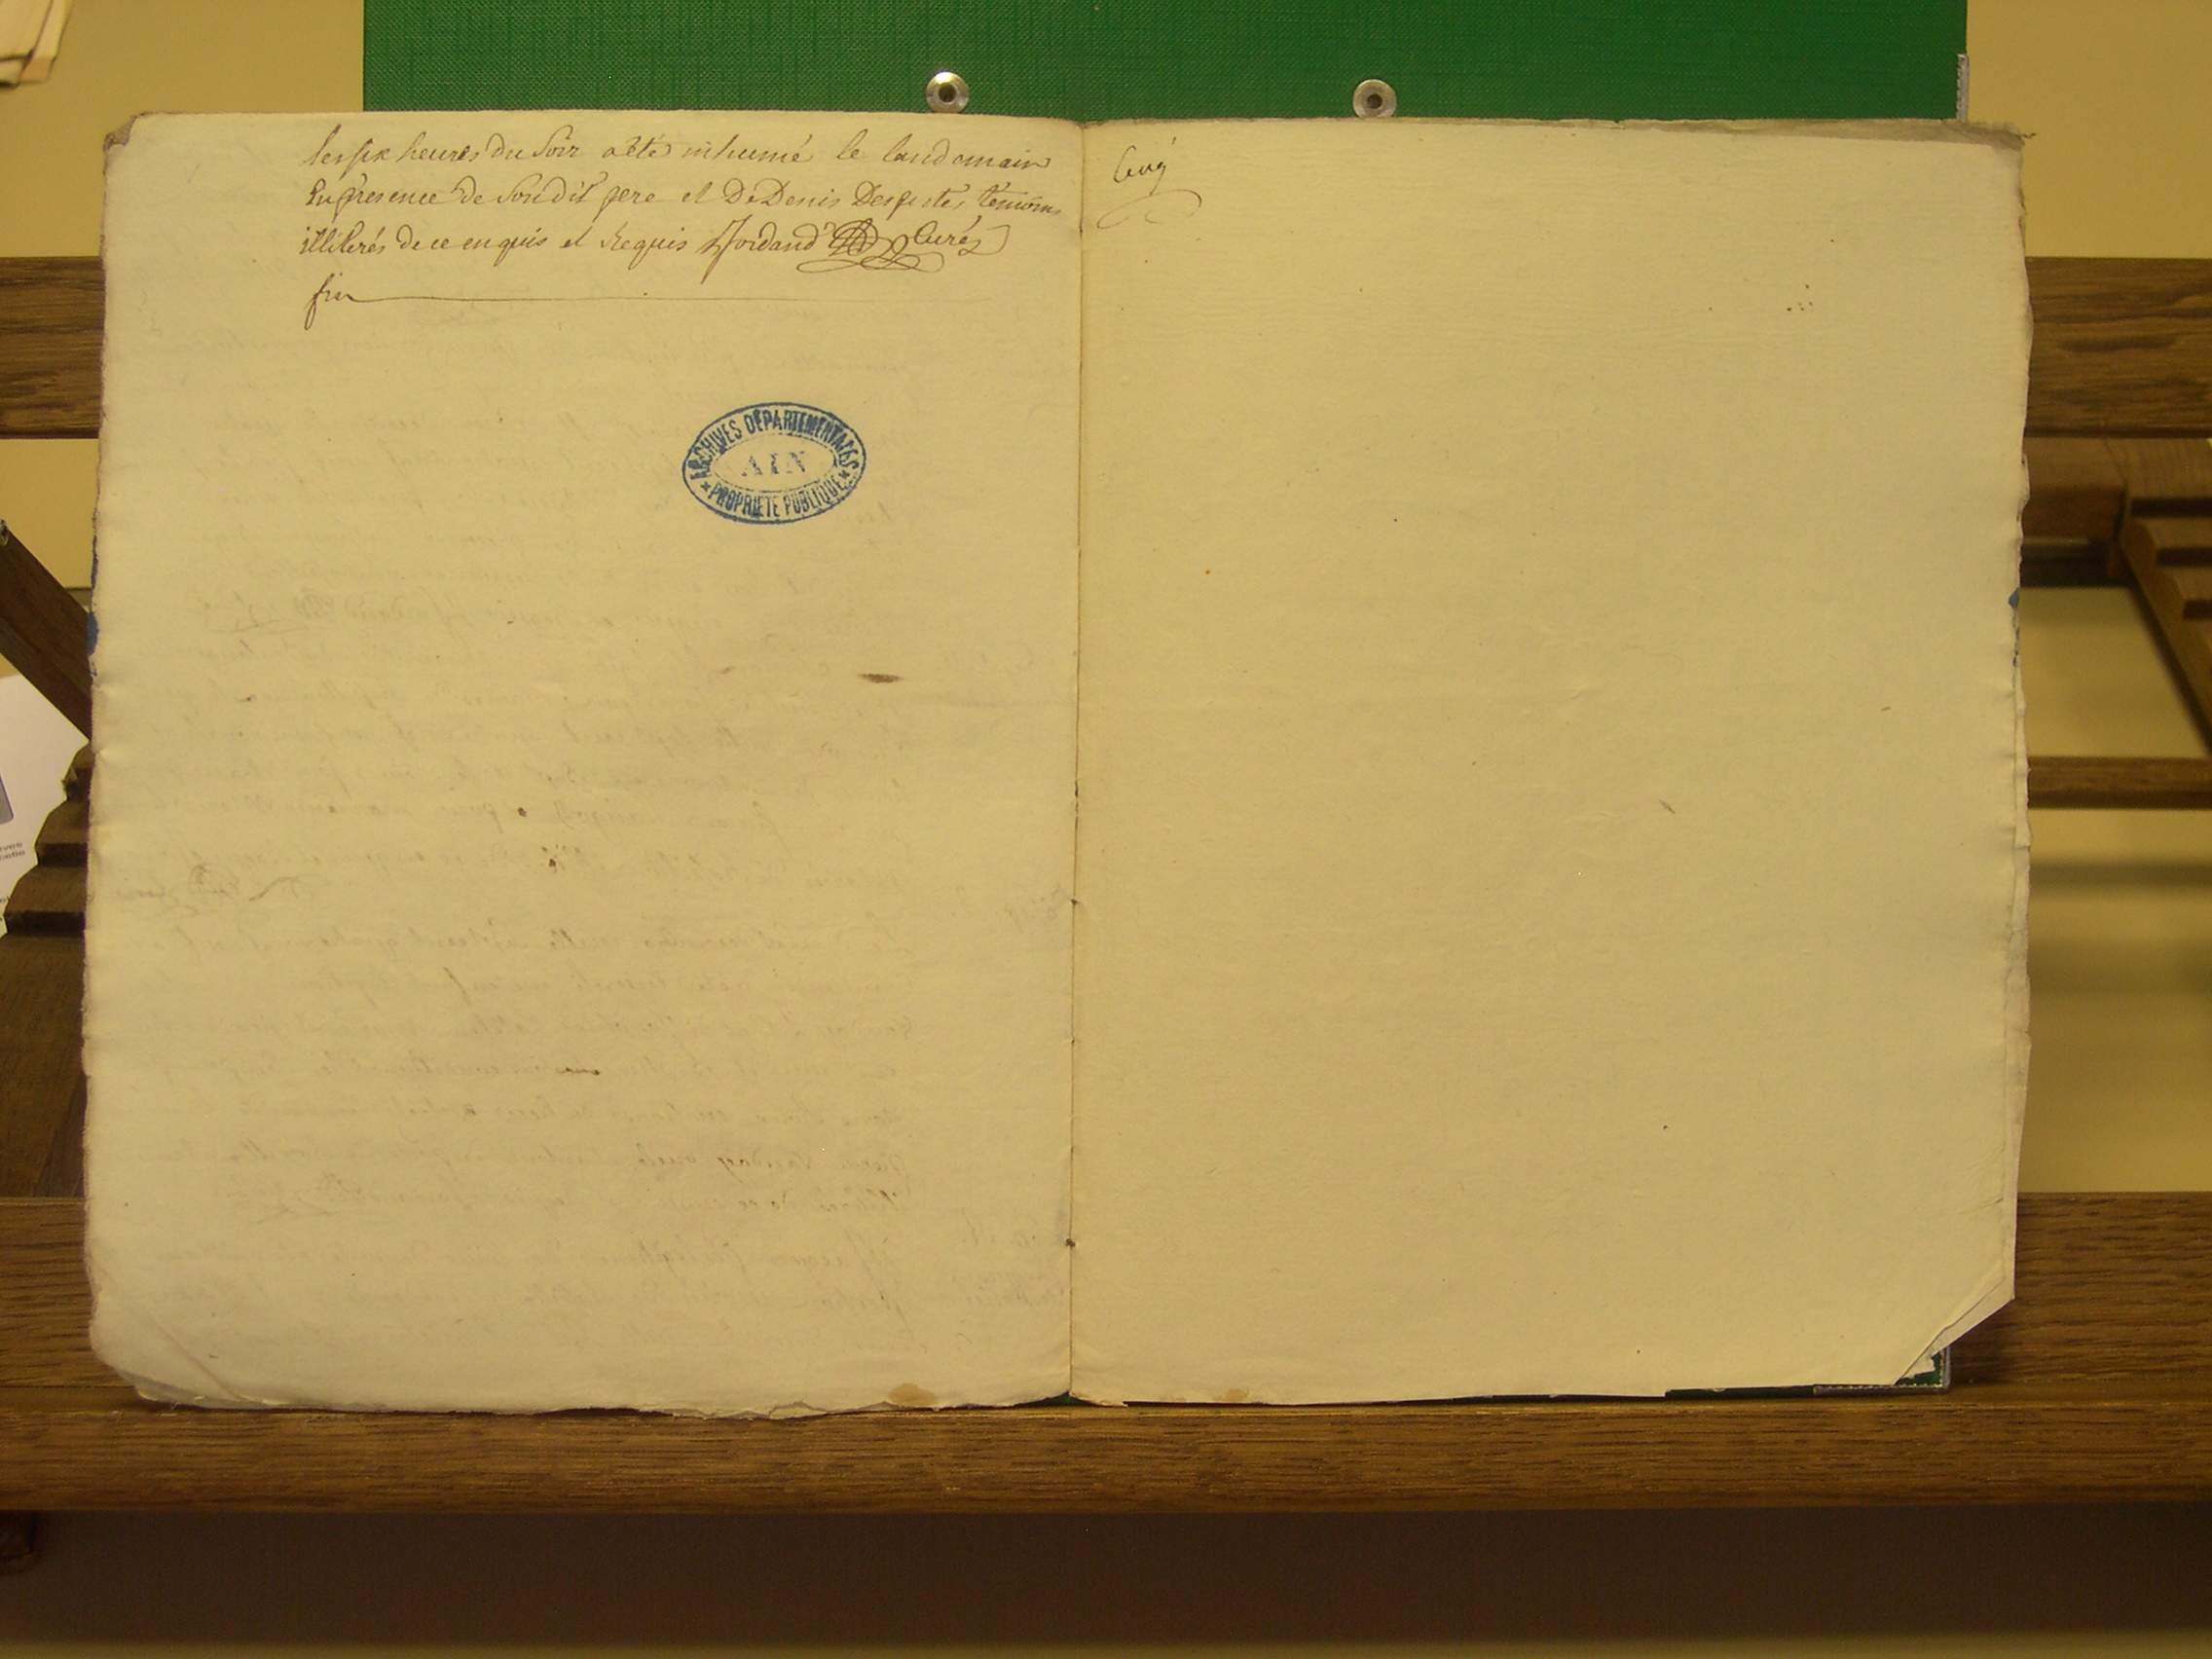 les six heures du Soir a été inhumé le landemain
En présence de Son dit pere et De Denis Desfretes témoins
illiterés de ce enquis et Requis Jordand Curé
fin
ARCHIVES DÉPARTEMENTALES
AIN
* PROPRIÉTÉ PUBLIQUE *